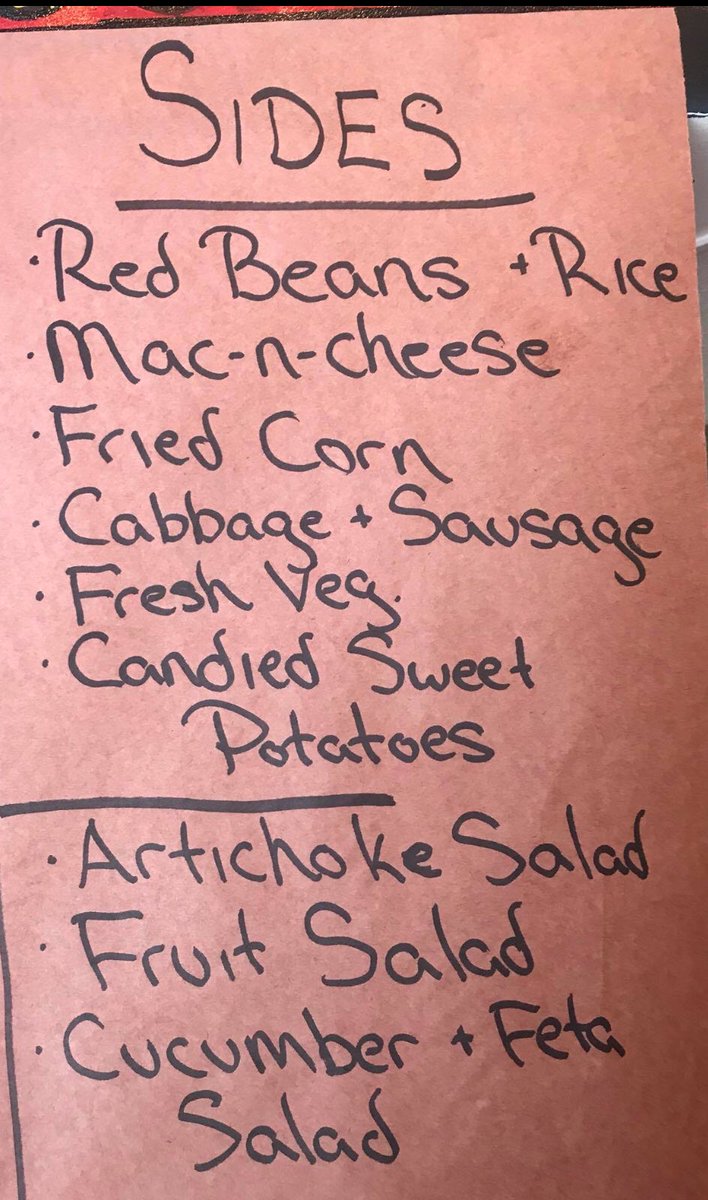 SIDES
·Red Beans + Rice
·Mac-n-cheese
·Fried Corn
·Cabbage + Sausage
·Fresh Veg.
·Candied Sweet
Potatoes
·Artichoke Salad
·Fruit Salad
·Cucumber + Feta
Salad